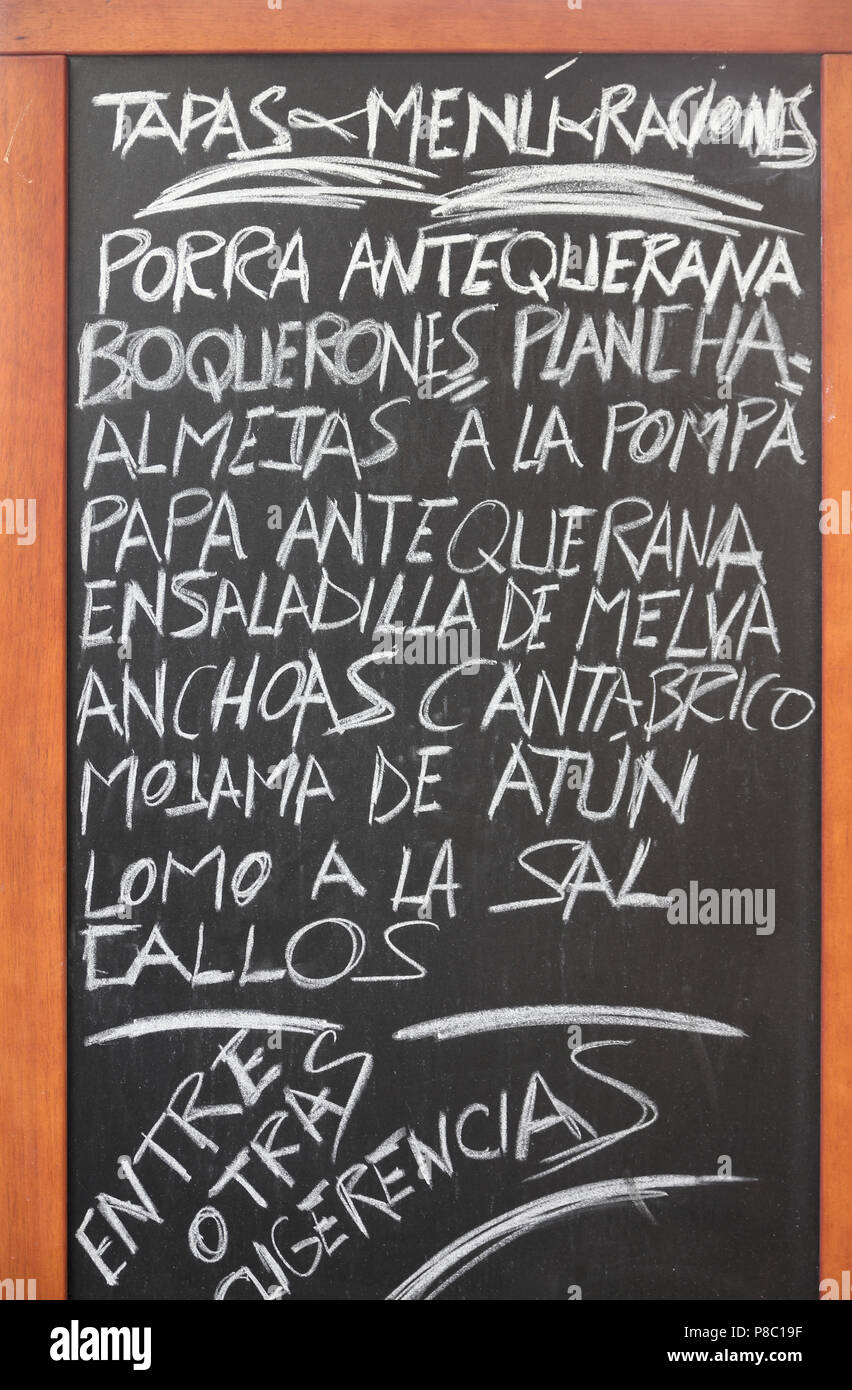 TAPAS - MENÚ - RACIONES
PORRA ANTEQUERANA
BOQUERONES PLANCHA
ALMEJAS A LA POMPA
PAPA ANTEQUERANA
ENSALADILLA DE MELVA
ANCHOAS CANTABRICO
MOJAMA DE ATÚN
LOMO A LA SAL
CALLOS
ENTRE
OTRAS
SUGERENCIAS
alamy
Image ID: P8C19F
www.alamy.com